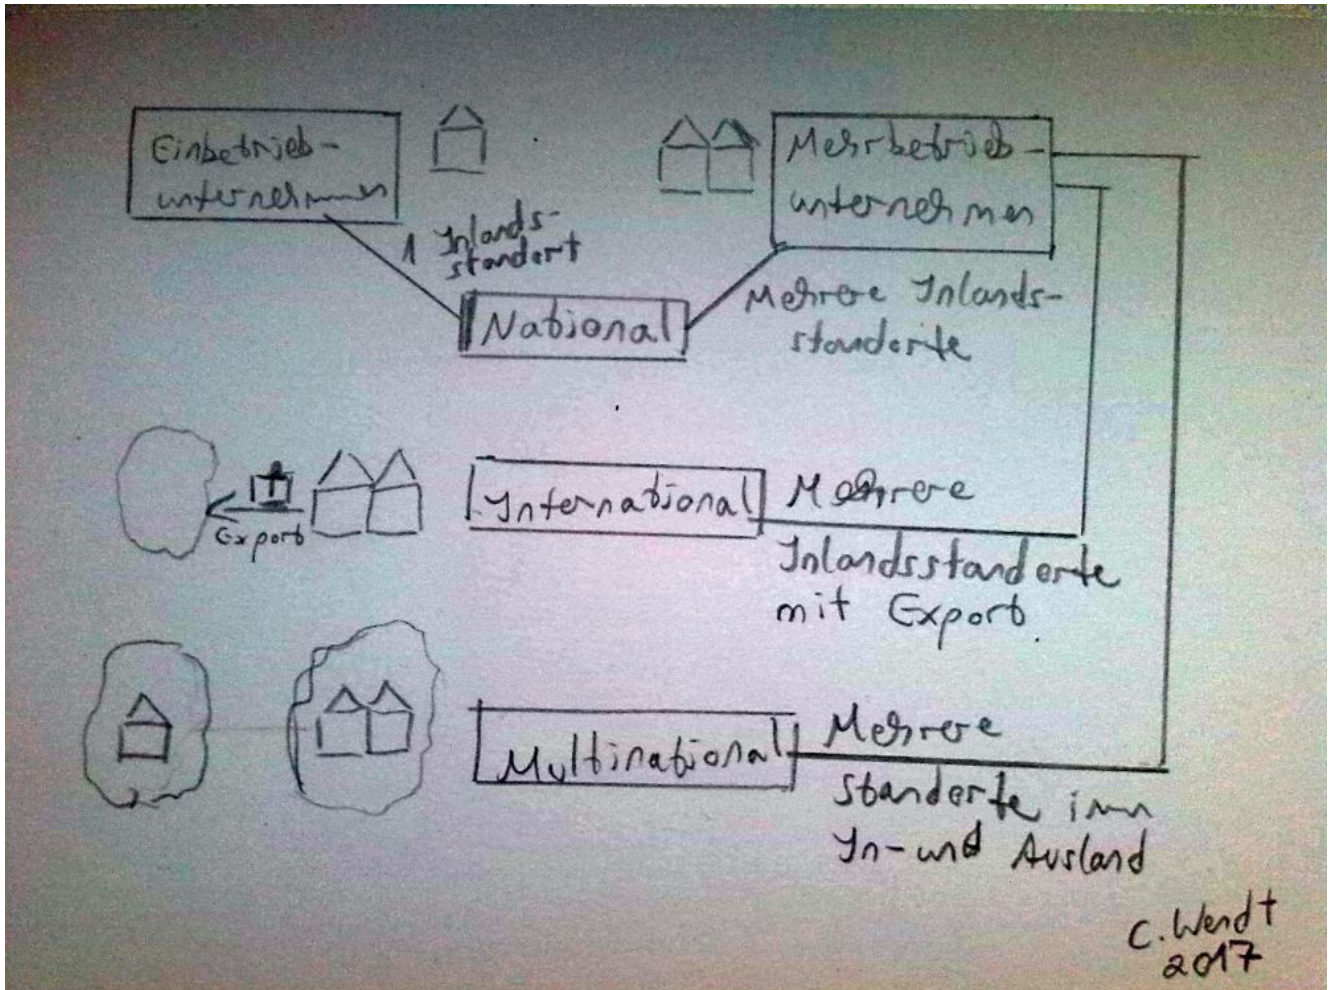 Einbetrieb-
unternehmen
1 Inlands-
standort
Mehrbetrieb-
unternehmen
Mehrere Inlands-
standorte
National
Export
International
Mehrere
Inlandsstandorte
mit Export.
Multinational
Mehrere
standorte im
In- und Ausland
C. Wendt
2017